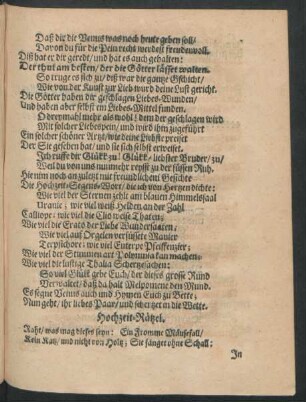 Daß dir die Venus was noch heute geben soll/
Davon du für die Pein recht werdest freudenvoll.
Diß hat er dir geredt/ und hat es auch gehalten:
Der thut am besten/ der die Götter lässet walten.
So truge es sich zu/ diß war die gantze Geschicht/
Wie von der Kunst zur Lieb wurd deine Lust gericht.
Die Götter haben dir geschlagen Liebes-Wunden/
Und haben aber selbst im Liebes-Mittel funden.
O dreymahl mehr als wohl! dem der geschlagen wird
Mit solcher Liebespein/ und wird ihm zugeführt
Ein solcher schöner Artzt/ wie deine Liebste preiset
Der Sie gesehen hat/ und sie sich selbst erweiset.
Ich ruffe dir Glükk zu! Glükk/ liebster Bruder/ zu/
Weil du von uns nunmehr reysst zu der süssen Ruh.
Hie nim noch an zuletzt mit freundlichem Gesichte
Die Hochzeit-Segens-Wort/ die ich von Hertzen dichte:
Wie viel der Sternen zehlt am blauen Himmelssaal
Uranie; wie viel weiß Helden an der Zahl
Calliope; wie viel die Clio weise Thaten;
Wie viel die Erato der Liebe Wundersaaten/
Wie viel auf Orgeln versüsster Manier
Terpsichore; wie viel Euterpe Pfeiffenzier;
Wie viel der Stummen art Polymnia kan machen;
Wie viel die lustige Thalia Schertzsachen:
So viel Glükk gebe Euch/ der dieses grosse Rund
Verwaltet/ daß da halt Melpomene den Mund.
Es segne Venus auch und Hymen Euch zu Bette;
Nun geht/ ihr liebes Paar/ und schertzet in die Wette.
Hochzeit-Rätzel.
Raht/ was mag dieses seyn: Ein Fromme Mäusefall/
Kein Katz/ und nicht von Holtz; Sie fänget ohne Schall;
In